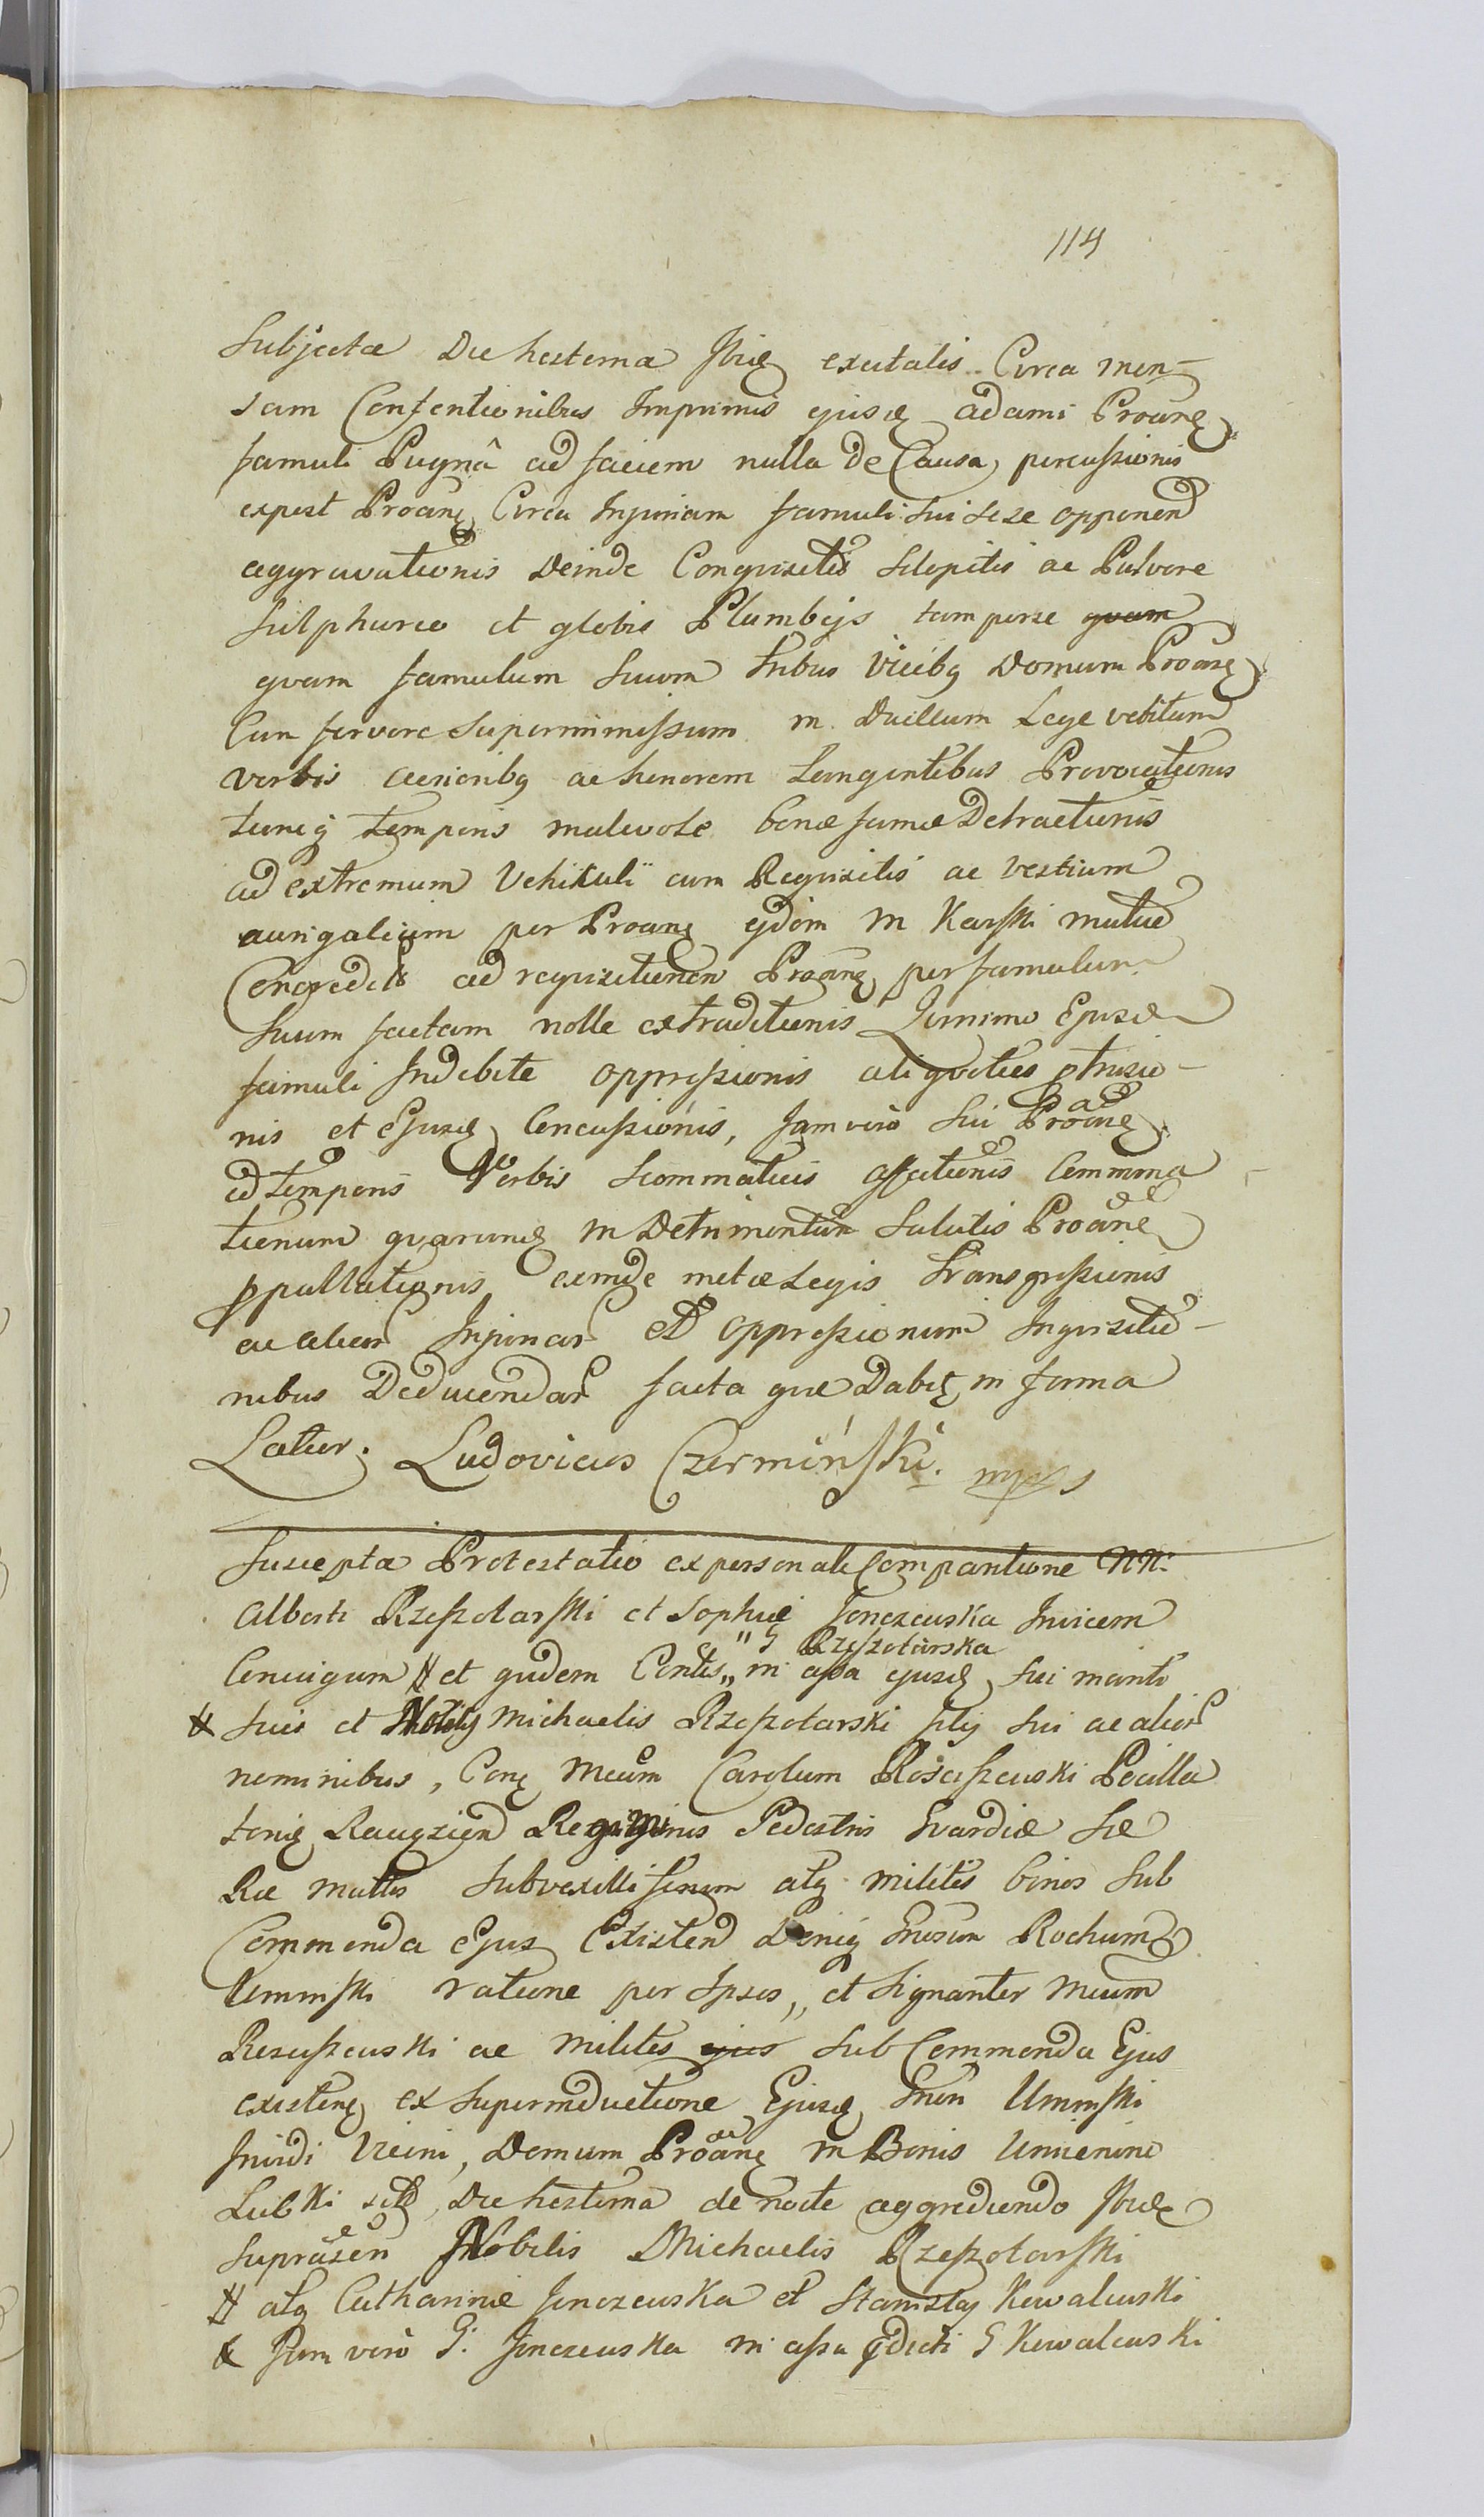 114
Subjecta Die hesterna Ibiq exitatis Circa men-
sam Contentionibus Imprimis ejusd adami Proanę
famuli Pugnâ ad faciem nulla de Causa, percussionis
expost Proanę Circa Injuriam famuli Sui sese opponend
aggravationis Deinde Conquisitis Sclopitis ac Pulvere
Sulphureo et globis Plumbejs tam perse quam
quam famulum Suum Tribus Vicibq Domum Proanę
Cum fervore Superimmissum in Duellum Lege vetitum
verbis acrioribq ac honorem Tangentibus Provocationis
tuncq temporis malevole bonæ famæ Detractionis
ad extremum Vehikuli cum Requisitis ac vestium
aurigalium per Proanę ejdem M Karski mutuo
Concredit ad requisitionem Proanę per famulum
Suum factam nolle extraditionis Immo Ejusd
famuli Indebite oppressionis aliquoties
nis et Ejusd Concussionis, Jam vero Sui Proanę
id temporis Verbis Scommaticis affectionis Commina
tionum quarunq in Detrimentum Salutis Proanę
ppallationis exinde metæ Legis Transgressionis
ac alior Injuriar et oppressionum Inquisitio-
nibus Deducendar facta quæ Dabit in forma
Latior. Ludovicus Czermiński. mpp
Suscepta Protestatio ex personali Comparitione NN:
Alberti Rzeszotarski et Sophiæ Jonczewska Invicem
Conjugum # et quidem Contis „ in assa ejusd, Sui mariti
„ G Rzeszotarska
# Suis et Nobilis Michaelis Rzeszotarski filij Sui ac alior
nominibus, Conę Mcum Carolum Rosciszewski
Regiminis Pedestris Gvardiæ Sæ
Ræ Mattis atq milites binos Sub
Commenda Ejus Existend Deniq Gnosum Rochum
Uminski ratione per Ipsos „ et Signanter Mcum
Rosciszewski ac milites ejus Sub Commenda Ejus
existenę ex Superinductione Ejusd Gnosi Uminski
Invidi Vicini, Domum Proanę in Bonis
Lubki Die hesterna de nocte aggrediendo Ibiq
Nobilis Michaelis Rzeszotarski
# atq Catharinæ Jonczewska et Stanislaj Kowalewski
# Jam vero G: Jonczewska in assa G Kowalewski